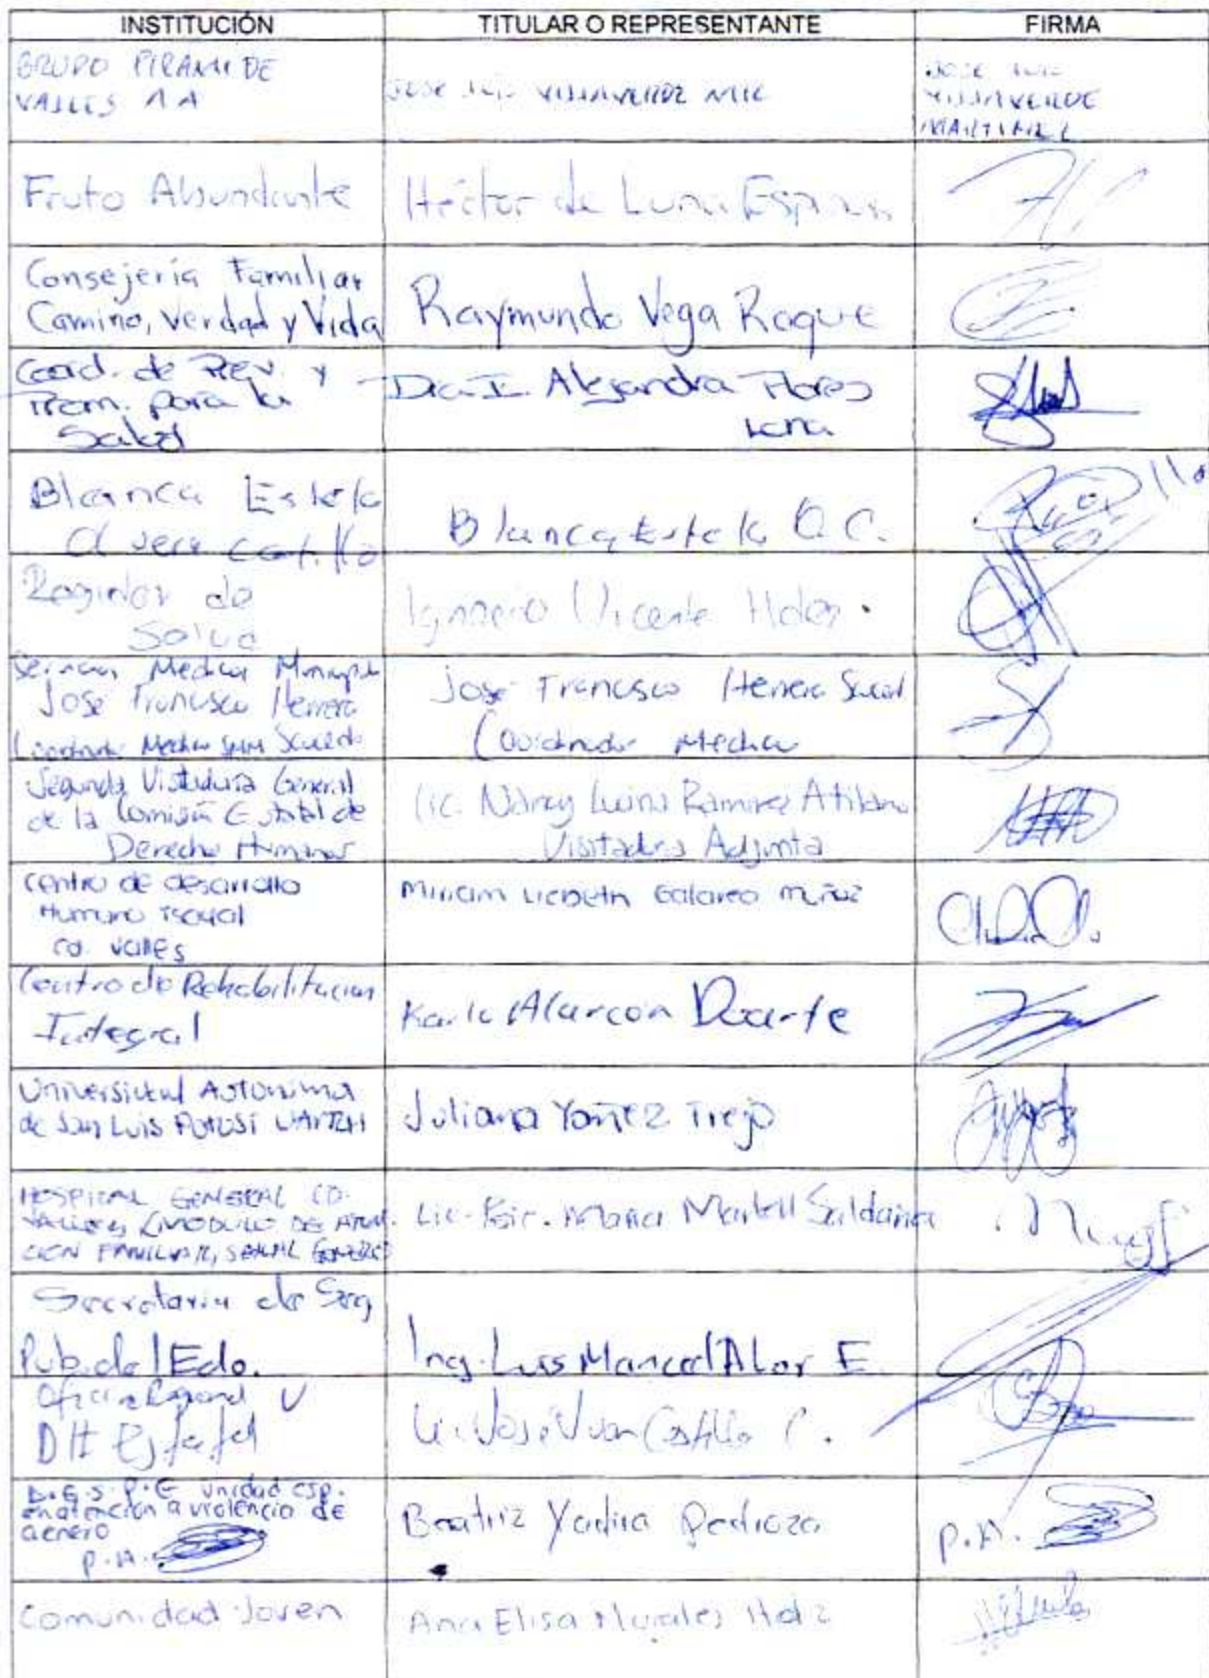 INSTITUCIÓN TITULAR O REPRESENTANTE FIRMA
GRUPO PIRAMIDE
VALLES AA
JOSE LUIS VILLAVERDE MTZ
JOSE LUIS
VILLAVERDE
MARTINEZ
Fruto Abundante
Héctor de Luna Espinosa
Consejería Familiar
Camino, Verdad y Vida
Raymundo Vega Roque
Coord. de Prev. y
Prom. para la
Salud
Dra. I. Alejandra Flores
Blanca Estela
Castillo
Blanca Estela O.C.
Regidor de
Salud
Ignacio Vicente Hdez.
Medicos
José Francisco Herrera
Coordinador Medico
José Francisco Herrera
Coordinador Medico
Segunda Visitaduria General
de la Comisión Estatal de
Derechos Humanos
Lic. Nancy Ramirez Atilano
Visitadora Adjunta
Centro de desarrollo
Humano
cd. valles
Miriam Galarza Muñoz
Centro de Rehabilitacion
Integral
Karla Alarcon Duarte
Universidad Autonoma
de San Luis Potosí
Juliana Yañez Trejo
HOSPITAL GENERAL CD.
VALLES (MODULO DE ATEN-
CION FAMILIAR, SEXUAL
Lic. Psic. Maria Martell Saldaña
Secretaria de Seg
Pub. del Edo.
Ing. Luis Manuel Alor E.
Oficina Regional V
DH Estatal
Lic. José Juan Castillo C.
D.G.S.P.E unidad esp.
en atencion a violencia de
genero
P.A.
Beatriz Yadira Pedroza
P.A.
Comunidad Joven
Ana Elisa Morales Hdz